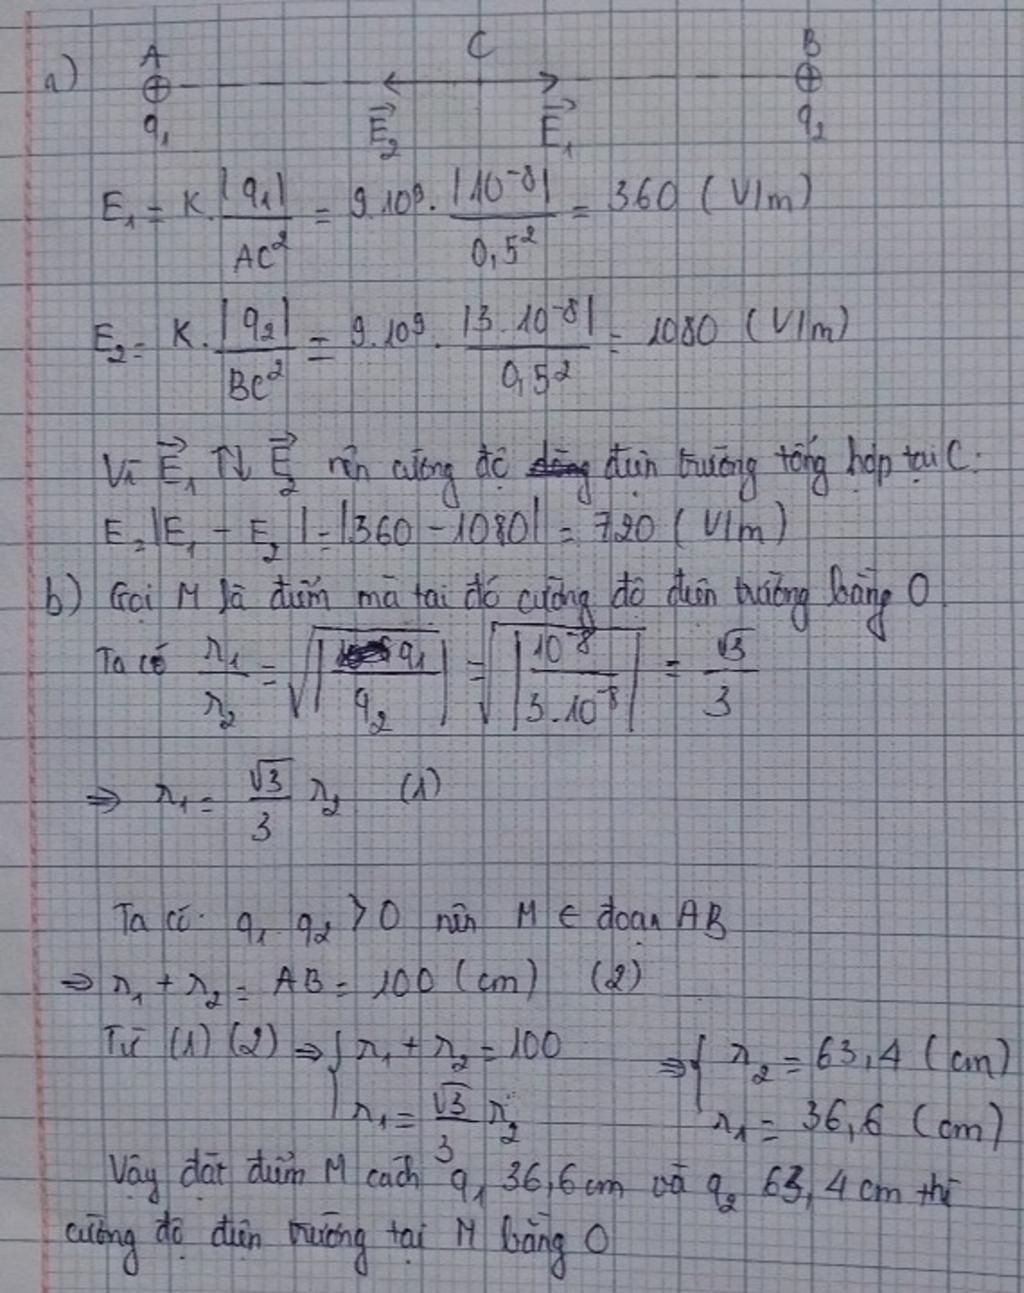 a) A C B
q₁ E⃗₂ E⃗₁ q₂
E₁ = K. |q₁| / AC² = 9.10⁹. |10⁻⁸| / 0,5² = 360 (V/m)
E₂ = K. |q₂| / BC² = 9.10⁹. |3.10⁻⁸| / 0,5² = 1080 (V/m)
Vì E⃗₁ ↑↓ E⃗₂ nên cường độ điện trường tổng hợp tại C:
E = |E₁ - E₂| = |360 - 1080| = 720 (V/m)
b) Gọi M là điểm mà tại đó cường độ điện trường bằng 0
Ta có r₁ / r₂ = √|q₁ / q₂| = √|10⁻⁸ / 3.10⁻⁸| = √3 / 3
⇒ r₁ = √3 / 3 r₂ (1)
Ta có: q₁ q₂ > 0 nên M ∈ đoạn AB
⇒ r₁ + r₂ = AB = 100 (cm) (2)
Từ (1) (2) ⇒ { r₁ + r₂ = 100 ⇒ { r₂ = 63,4 (cm)
r₁ = √3 / 3 r₂ r₁ = 36,6 (cm)
Vậy đặt điểm M cách q₁ 36,6 cm và q₂ 63,4 cm thì
cường độ điện trường tại M bằng 0